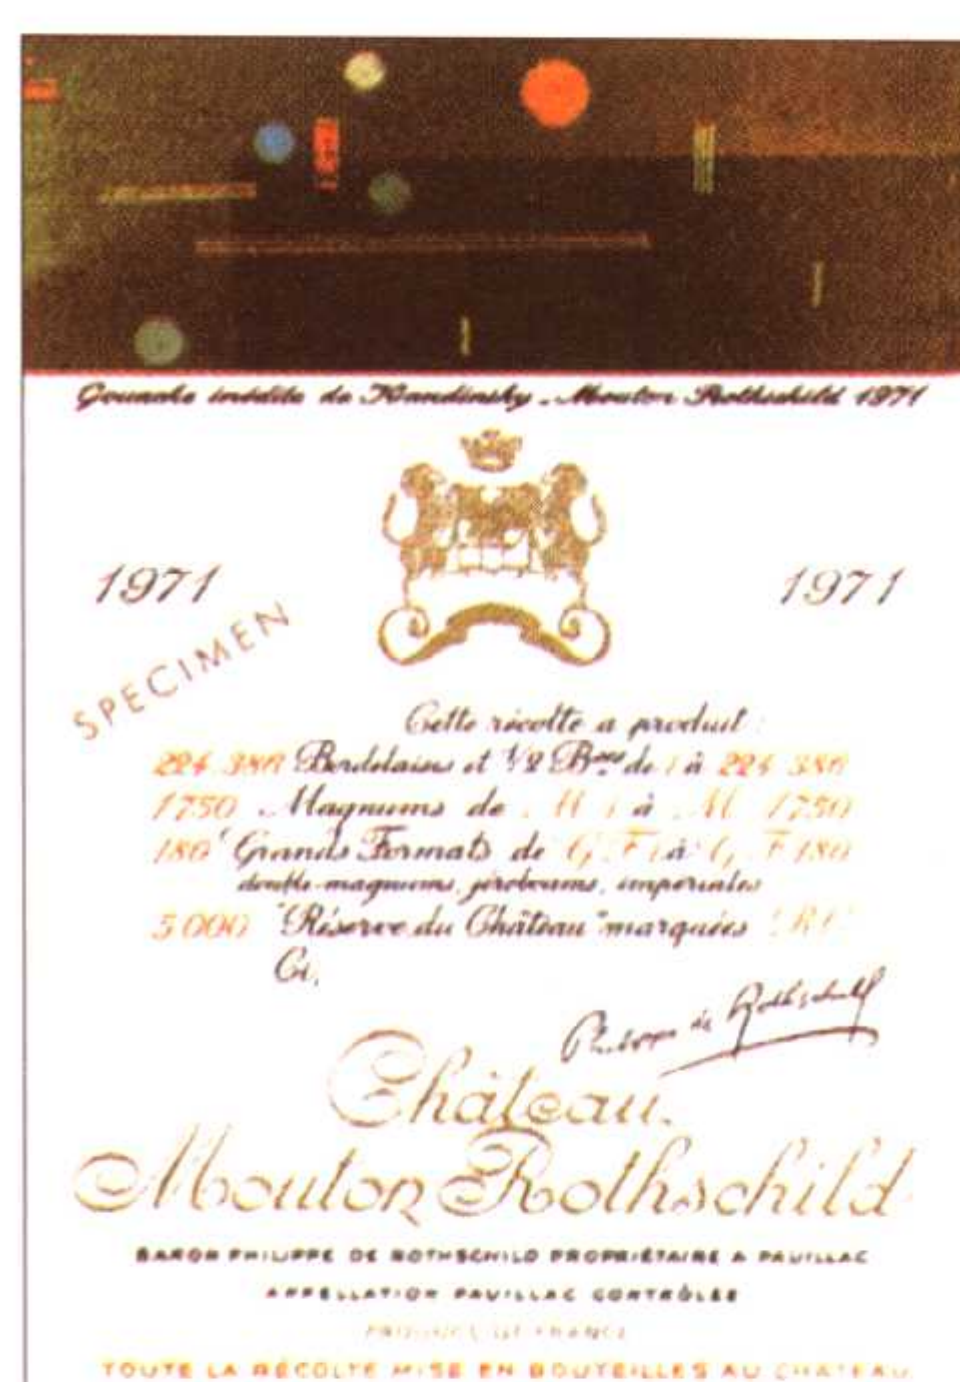 Gouache inédite de Kandinsky - Mouton Rothschild 1971
1971
1971
SPECIMEN
Cette récolte a produit :
224.386 Bordelaises et 1/2 Bses de 1 à 224.386
1750 Magnums de M 1 à M 1750
180 Grands Formats de G F 1 à G F 180
double-magnums, jéroboams, impériales
5.000 "Réserve du Château" marquées R.C.
Ci,
Philippe de Rothschild
Château
Mouton Rothschild
BARON PHILIPPE DE ROTHSCHILD PROPRIÉTAIRE A PAUILLAC
APPELLATION PAUILLAC CONTRÔLÉE
PRODUCE OF FRANCE
TOUTE LA RÉCOLTE MISE EN BOUTEILLES AU CHATEAU